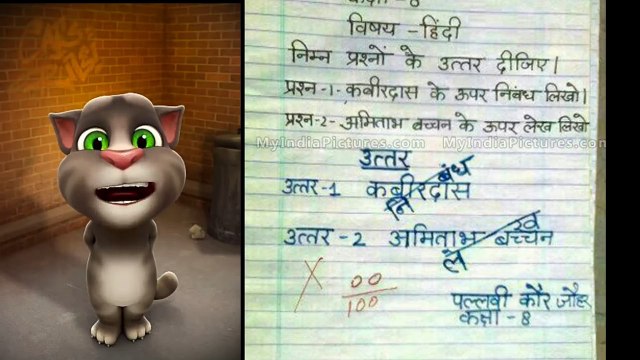 कक्षा - 8
विषय - हिंदी
निम्न प्रश्नों के उत्तर दीजिए।
प्रश्न-1- कबीरदास के ऊपर निबंध लिखो।
प्रश्न-2- अमिताभ बच्चन के ऊपर लेख लिखो
MyIndiaPictures.com MyIndiaPictures.com
उत्तर
उत्तर-1 कबीरदास
निबंध
उत्तर-2 अमिताभ बच्चन
लेख
X 00/100
पल्लवी कौर जौहर
कक्षा - 8